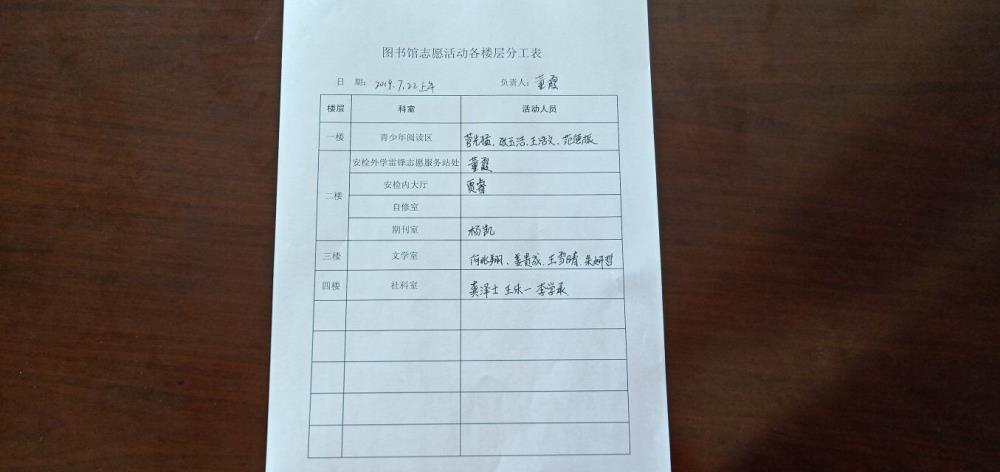 图书馆志愿活动各楼层分工表
日 期：2019.7.22上午 负责人：董霞
楼层 科室 活动人员
一楼 青少年阅读区 菅光猛、张玉浩、王浩文、范德振
二楼 安检外学雷锋志愿服务站处 董霞
安检内大厅 贾睿
自修室
期刊室 杨凯
三楼 文学室 何兆翔、姜贵成、王雪晴、朱妍哲
四楼 社科室 龚泽士 王乐一 李学承